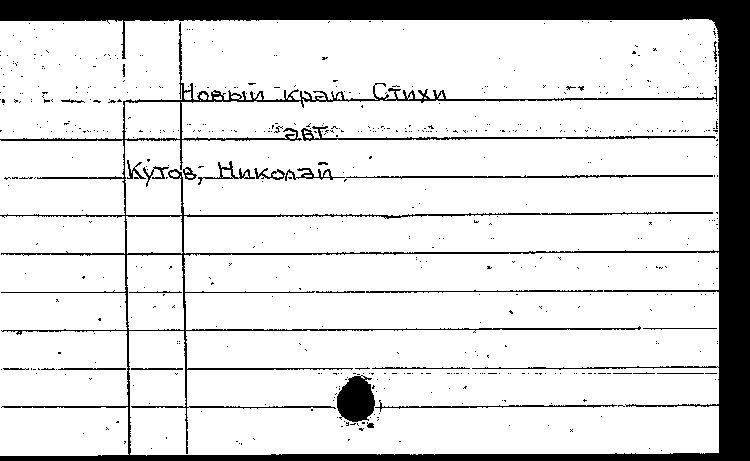 Новый край. Стихи
авт.
Кутов, Николай